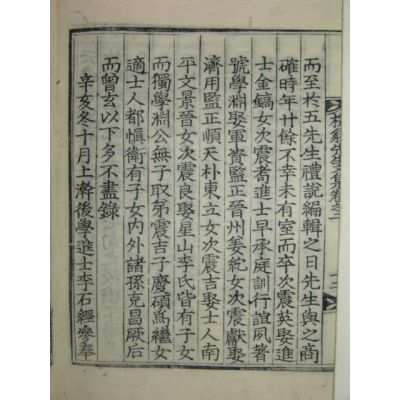 而至於五先生禮說編輯之日先生與之商
確時年廿餘不幸未有室而卒次震英娶進
士金鎬女次震耆進士早承庭訓行誼夙著
號學淵娶軍資監正晉州姜紞女次震獻娶
濟用監正順天朴東立女次震吉娶士人南
平文景晉女次震良娶星山李氏皆有子女
而獨學淵公無子取弟震吉子慶碩爲繼女
適士人都愼衛有子女內外諸孫克昌厥后
而曾玄以下多不盡錄
辛亥冬十月上澣後學進士李石經參奉